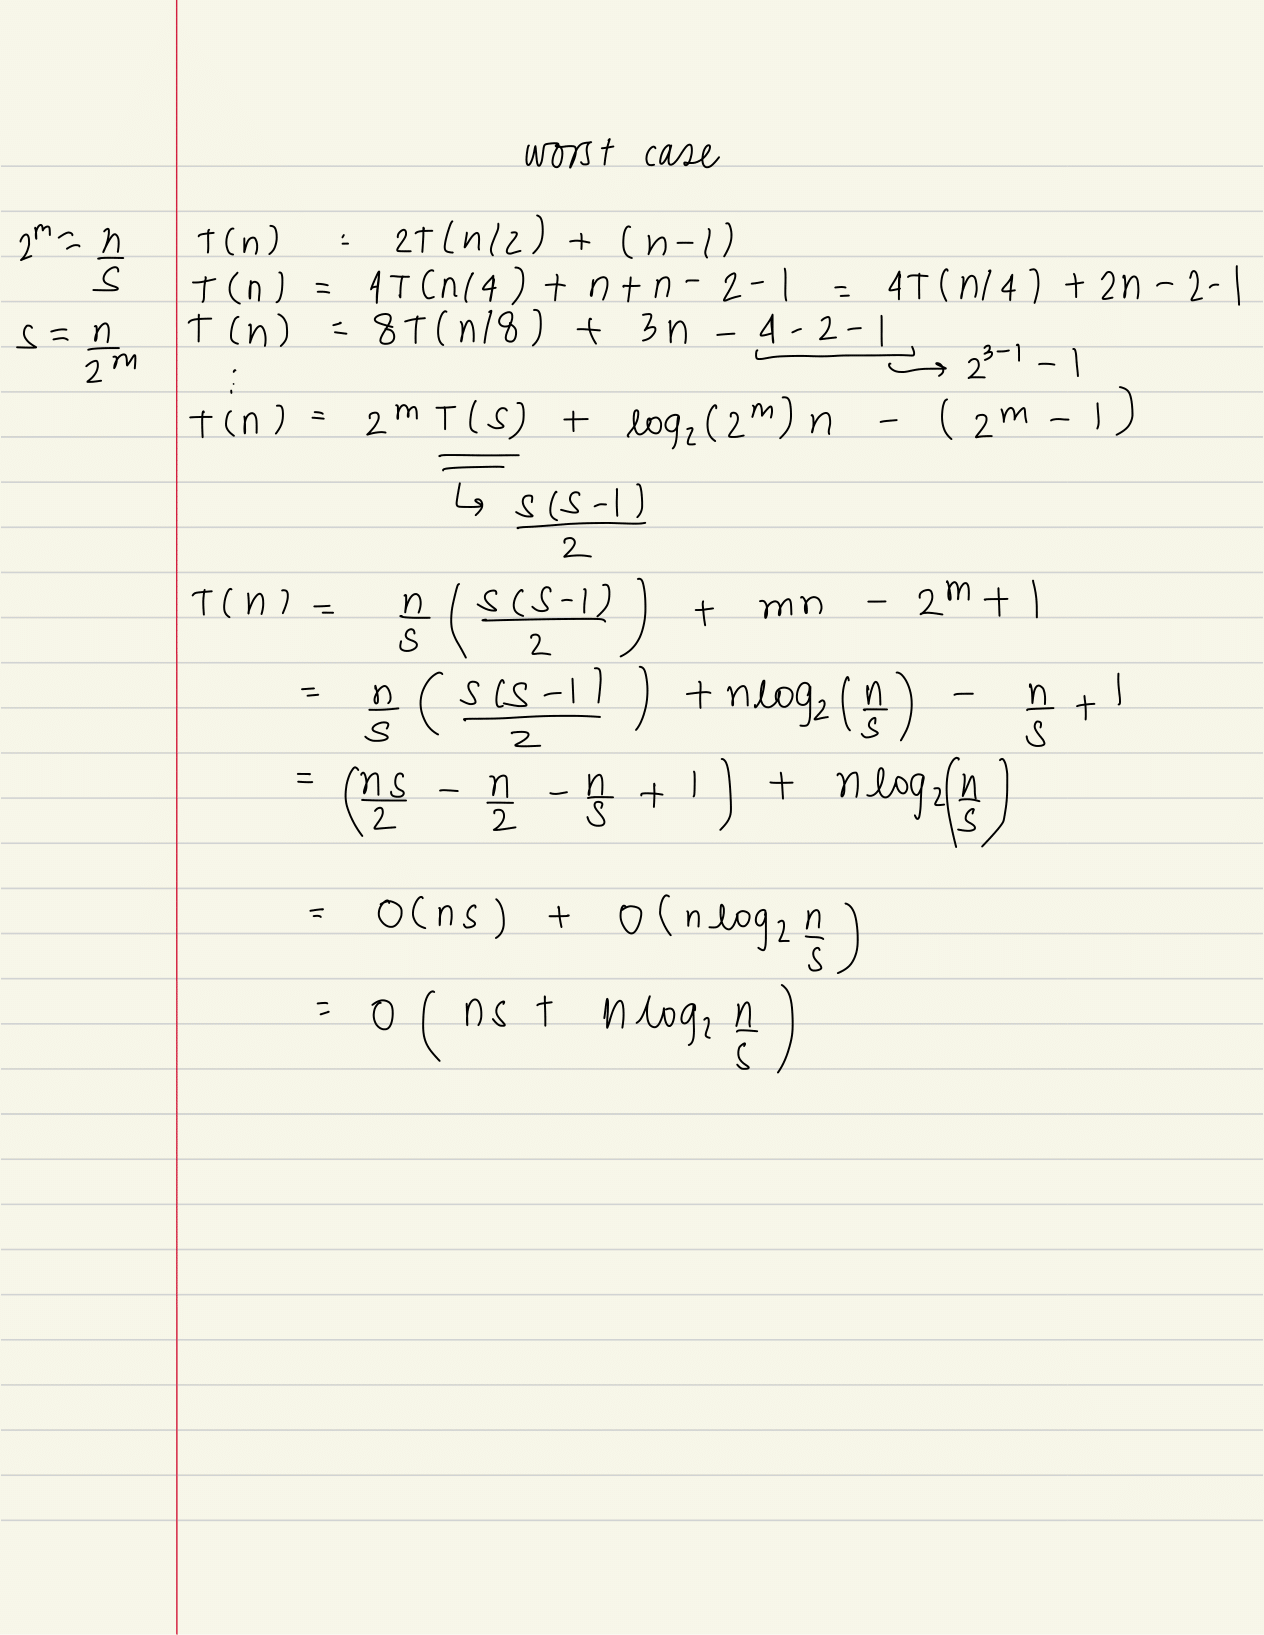 worst case
2^m = n/s
T(n) = 2T(n/2) + (n-1)
T(n) = 4T(n/4) + n+n - 2-1 = 4T(n/4) + 2n - 2-1
s = n/2^m
T(n) = 8T(n/8) + 3n - 4-2-1
→ 2^{3-1} - 1
⋮
T(n) = 2^m T(s) + log₂(2^m)n - (2^m - 1)
↳ s(s-1)/2
T(n) = n/s (s(s-1)/2) + mn - 2^m + 1
= n/s (s(s-1)/2) + nlog₂(n/s) - n/s + 1
= (ns/2 - n/2 - n/s + 1) + nlog₂(n/s)
= O(ns) + O(nlog₂ n/s)
= O(ns + nlog₂ n/s)